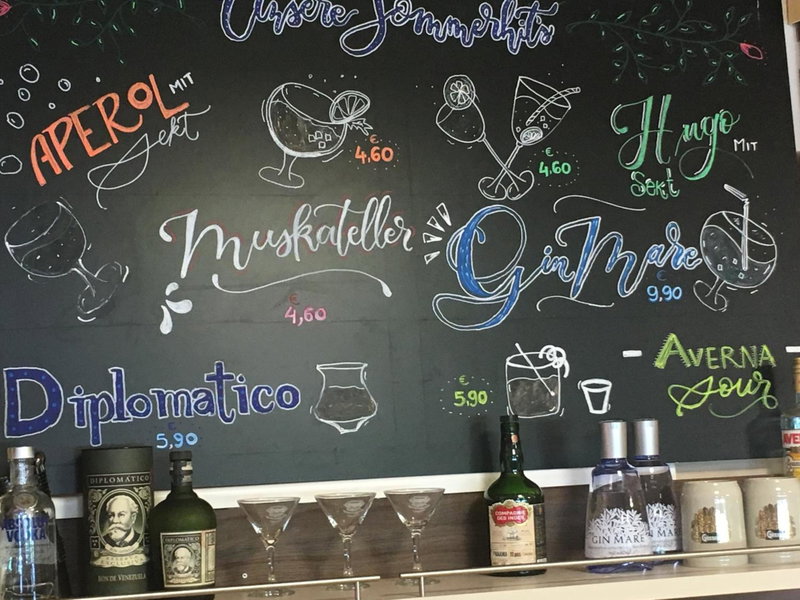 Unsere Sommerhits
APEROL MIT
Sekt
€
4,60
€
4,60
Hugo MIT
Sekt
Muskateller
€
4,60
Gin Mare
€
9,90
Diplomatico
€
5,90
€
5,90
AVERNA
sour
ABSOLUT
VODKA
DIPLOMÁTICO
RON DE VENEZUELA
DIPLOMÁTICO
COMPAGNIE
DES INDES
GIN MARE
GIN MARE